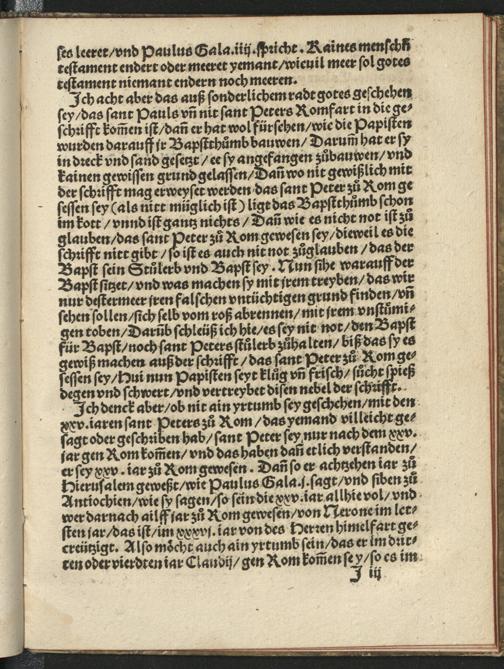 ses leeret/vnd Paulus Gala.iiij.spricht. Kaines menschñ
testament endert oder meeret yemant/wieuil meer sol gotes
testament niemant endern noch meeren.
Ich acht aber das auß sonderlichem radt gotes geschehen
sey/das sant Pauls vñ nit sant Peters Romfart in die ge-
schrifft kom̃en ist/dañ er hat wol fürsehen/wie die Papisten
wurden darauff jr Bapstthůmb bauwen/Darum̃ hat er sy
in dreck vnd sand gesetzt/ee sy angefangen zůbauwen/vnd
kainen gewissen grund gelassen/Dañ wo nit gewißlich mit
der schrifft mag erweyset werden das sant Peter zů Rom ge
sessen sey (als nitt müglich ist) ligt das Bapstthůmb schon
im kott/vnnd ist gantz nichts/Dañ wie es nicht not ist zů
glauben/das sant Peter zů Rom gewesen sey/dieweil es die
schrifft nitt gibt/so ist es auch nit not zůglauben/das der
Bapst sein Stůlerb vnd Bapst sey. Nun sihe warauff der
Bapst sitzet/vnd was machen sy mit jrem treyben/das wir
nur destermeer jren falschen vntüchtigen grund finden/vñ
sehen sollen/sich selb vom roß abrennen/mit jrem vnstůmi-
gen toben/Darũb schleüß ich hie/es sey nit not/den Bapst
für Bapst/noch sant Peters stůlerb zůhalten/biß das sy es
gewiß machen auß der schrifft/das sant Peter zů Rom ge-
sessen sey/hui nun Papisten seyt klůg vñ frisch/sůcht spieß
degen vnd schwert/vnd vertreybet disen nebel der schrifft.
Ich denck aber/ob nit ain yrtumb sey geschehen/mit den
xxv.iaren sant Peters zů Rom/das yemand villeicht ge-
sagt oder geschriben hab/sant Peter sey nur nach dem xxv.
jar gen Rom kom̃en/vnd das haben dañ etlich verstanden/
er sey xxv.iar zů Rom gewesen. Dañ so er achtzehen iar zů
Hierusalem geweßt/wie Paulus Gala.j.sagt/vnd siben zů
Antiochien/wie sy sagen/so sein die xxv.iar allhie vol/vnd
wer darnach ailff jar zů Rom gewesen/von Nerone im let-
sten jar/das ist/im xxxvj.iar von des Herren himelfart ge-
creützigt. Also möcht auch ain yrtumb sein/das er im drit-
ten oder vierdten iar Claudij/gen Rom kom̃en sey/so es im
J iij